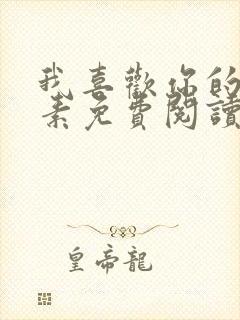 我喜歡你的
素免費閱讀
皇帝龍